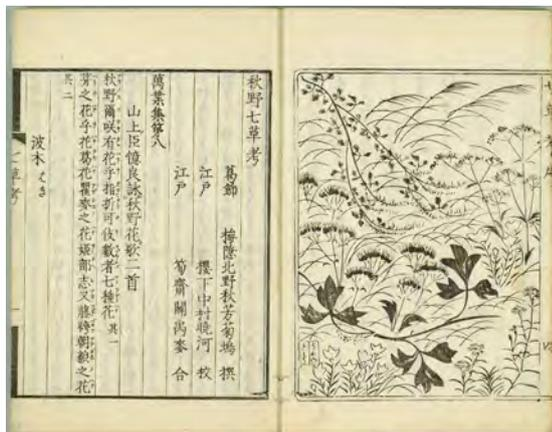 秋野七草考
葛飾 梅隠北野秋芳菊塢 撰
江戸 櫻下中村曉河 校
江戸 筍齋關 麥 合
萬葉集第八
山上臣憶良詠秋野花歌二首
秋野爾咲有花乎指折可伎數者七種花 其一
芽之花乎花葛花瞿麥之花姫部志又藤袴朝貌之花
其二
波木 はき
七草考